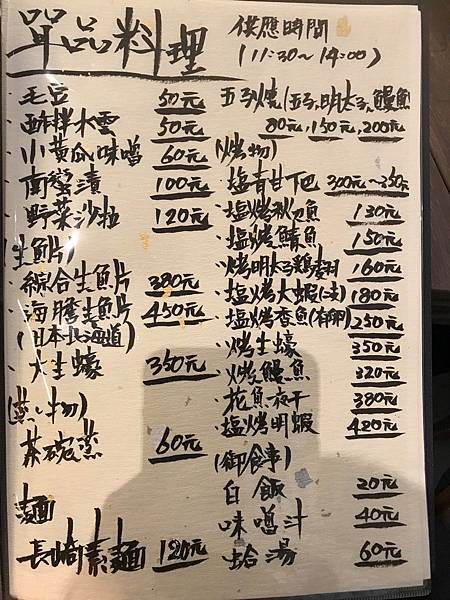 單品料理
供應時間
(11:30～14:00)
毛豆 50元
酢拌水雲 50元
小黃瓜味噌 60元
南蠻漬 100元
野菜沙拉 120元
(生魚片)
綜合生魚片 380元
海膽生魚片 450元
(日本北海道)
大生蠔 350元
(蒸し物)
茶碗蒸 60元
麵
長崎素麵 120元
玉子燒(玉子,明太子,鰻魚)
80元,150元,200元
(烤物)
塩青甘下巴 300元～350元
塩烤秋刀魚 130元
塩烤鯖魚 150元
烤明太子雞翅 160元
塩烤大蝦(2支) 180元
塩烤香魚(有卵) 250元
烤生蠔 350元
烤鰻魚 320元
花魚一夜干 380元
塩烤明蝦 420元
(御食事)
白飯 20元
味噌汁 40元
蛤湯 60元